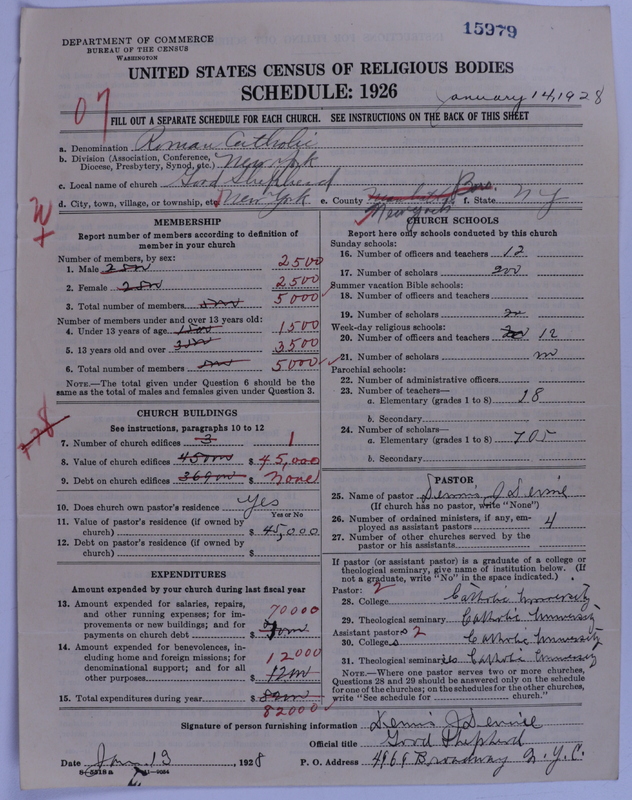 15979
DEPARTMENT OF COMMERCE
BUREAU OF THE CENSUS
WASHINGTON
UNITED STATES CENSUS OF RELIGIOUS BODIES
SCHEDULE: 1926
January 14, 1928
07
FILL OUT A SEPARATE SCHEDULE FOR EACH CHURCH. SEE INSTRUCTIONS ON THE BACK OF THIS SHEET
a. Denomination Roman Catholic
b. Division (Association, Conference, Diocese, Presbytery, Synod, etc.) New York
c. Local name of church Good Shepherd
d. City, town, village, or township, etc. New York e. County Boro. New York f. State NY
MEMBERSHIP
Report number of members according to definition of member in your church
Number of members, by sex:
1. Male 2500
2. Female 2500
3. Total number of members 5000
Number of members under and over 13 years old:
4. Under 13 years of age 1500
5. 13 years old and over 3500
6. Total number of members 5000
NOTE.—The total given under Question 6 should be the same as the total of males and females given under Question 3.
CHURCH BUILDINGS
See instructions, paragraphs 10 to 12
7. Number of church edifices 3 1
8. Value of church edifices $ 45,000
9. Debt on church edifices $ none
10. Does church own pastor's residence? Yes
Yes or No
11. Value of pastor's residence (if owned by church) $ 45,000
12. Debt on pastor's residence (if owned by church) $
EXPENDITURES
Amount expended by your church during last fiscal year
13. Amount expended for salaries, repairs, and other running expenses; for improvements or new buildings; and for payments on church debt $ 70000
14. Amount expended for benevolences, including home and foreign missions; for denominational support; and for all other purposes $ 12000
15. Total expenditures during year $ 82000
CHURCH SCHOOLS
Report here only schools conducted by this church
Sunday schools:
16. Number of officers and teachers 12
17. Number of scholars
Summer vacation Bible schools:
18. Number of officers and teachers
19. Number of scholars
Week-day religious schools:
20. Number of officers and teachers 12
21. Number of scholars
Parochial schools:
22. Number of administrative officers
23. Number of teachers—
a. Elementary (grades 1 to 8) 18
b. Secondary
24. Number of scholars—
a. Elementary (grades 1 to 8) 705
b. Secondary
PASTOR
25. Name of pastor Dennis J Devine
(If church has no pastor, write "None")
26. Number of ordained ministers, if any, employed as assistant pastors 4
27. Number of other churches served by the pastor or his assistants
If pastor (or assistant pastor) is a graduate of a college or theological seminary, give name of institution below. (If not a graduate, write "No" in the space indicated.)
Pastor: 2
28. College Catholic University
29. Theological seminary Catholic University
Assistant pastors 2
30. Colleges Catholic University
31. Theological seminaries Catholic University
NOTE.—Where one pastor serves two or more churches, Questions 28 and 29 should be answered only on the schedule for one of the churches; on the schedules for the other churches, write "See schedule for church."
Signature of person furnishing information Dennis J Devine
Official title Good Shepherd
Date Jan 13, 1928 P. O. Address 4968 Broadway N.Y.C.